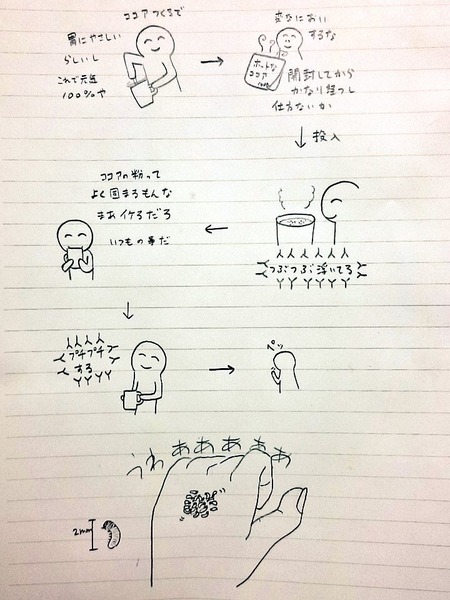 ココアつくるで
胃にやさしい
らしいし
これで元気
100%や
変なにおい
するな
ホットな
ココア
100%
開封してから
かなり経つし
仕方ないか
投入
つぶつぶ浮いてる
ココアの粉って
よく固まるもんな
まあイケるだろ
いつもの事だ
プチプチ
する
ペッ
うわぁぁぁぁぁ
2mm